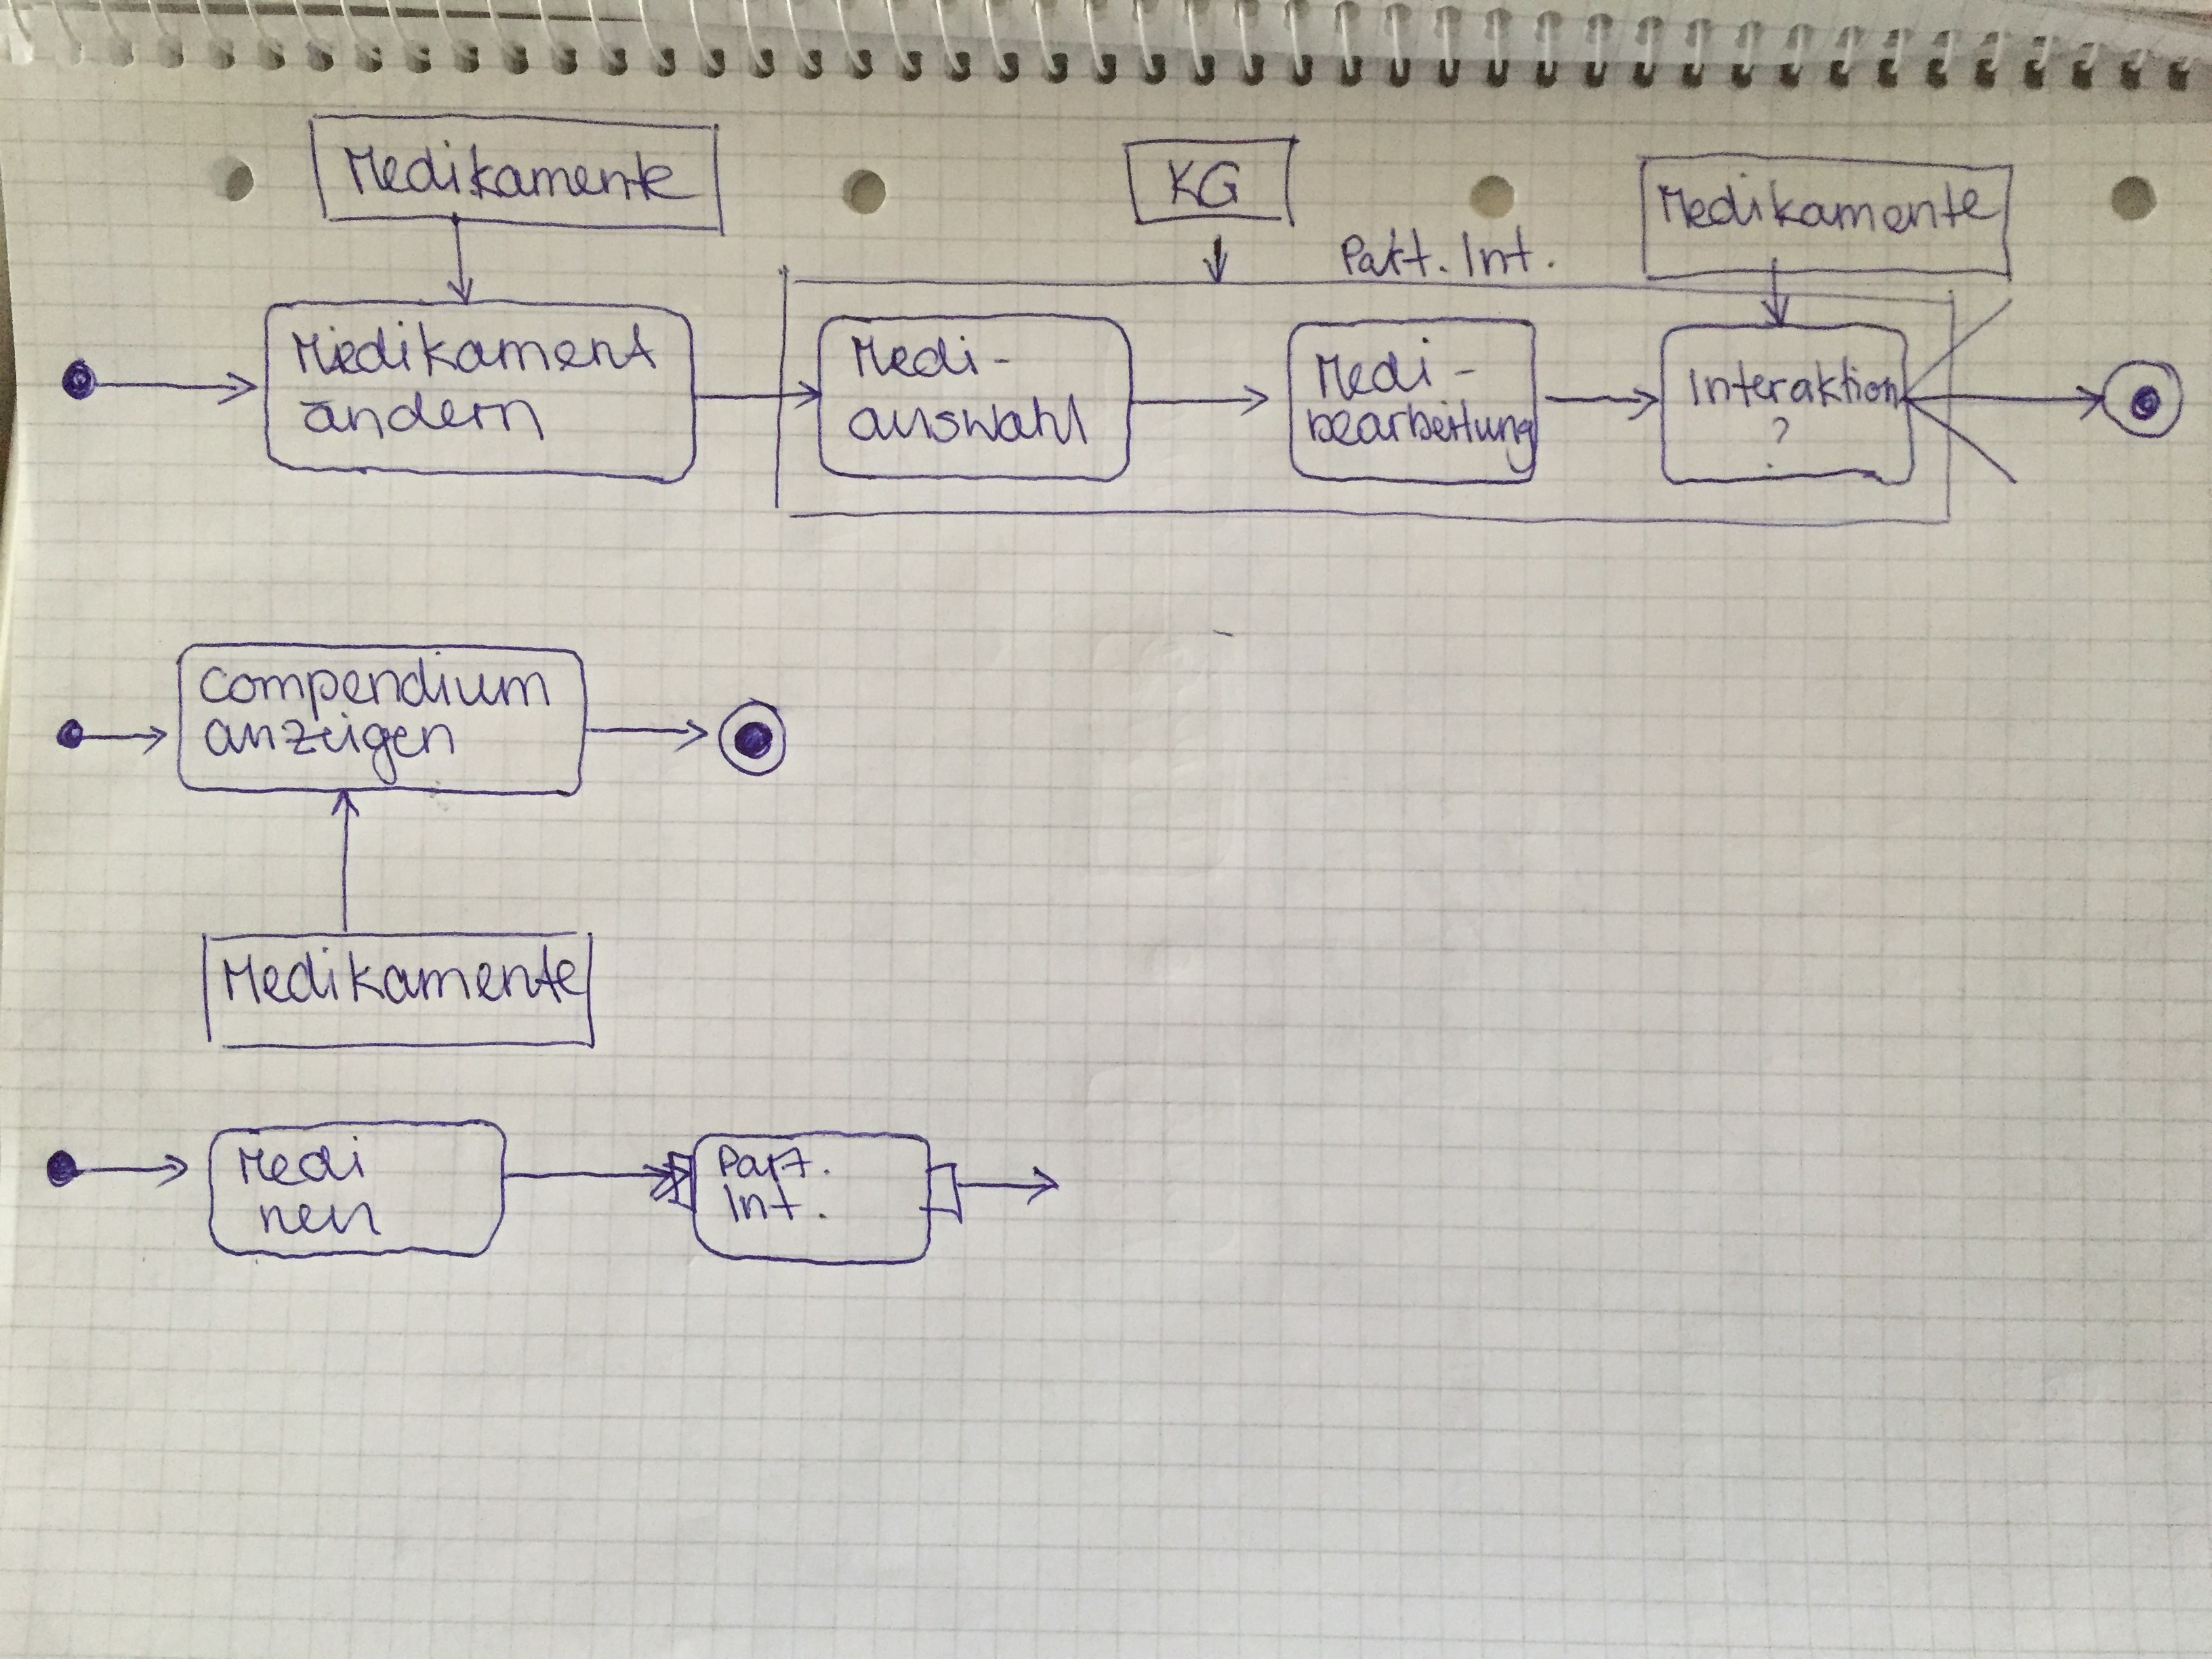 Medikamente
KG
Medikamente
Patt. Int.
Medikament
ändern
Medi-
auswahl
Medi-
bearbeitung
Interaktion
?
Compendium
anzeigen
Medikamente
Medi
neu
Patt.
Int.